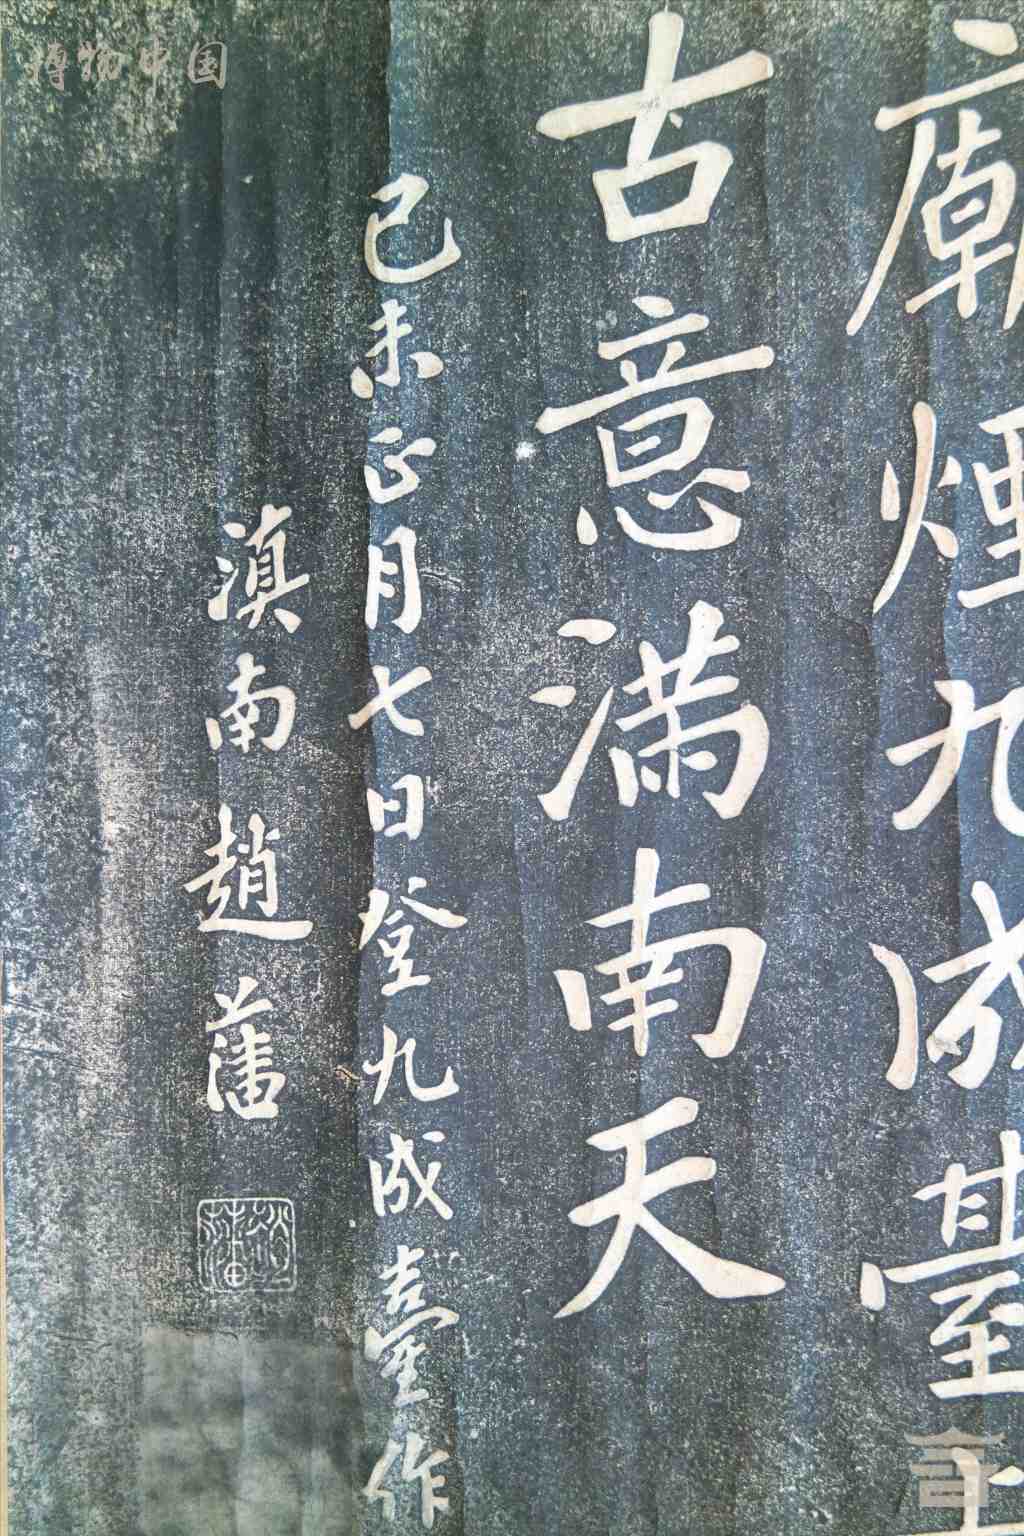 廟煙九成臺上
古意满南天
己未正月七日登九成臺作
滇南趙藩
趙藩
博物中国